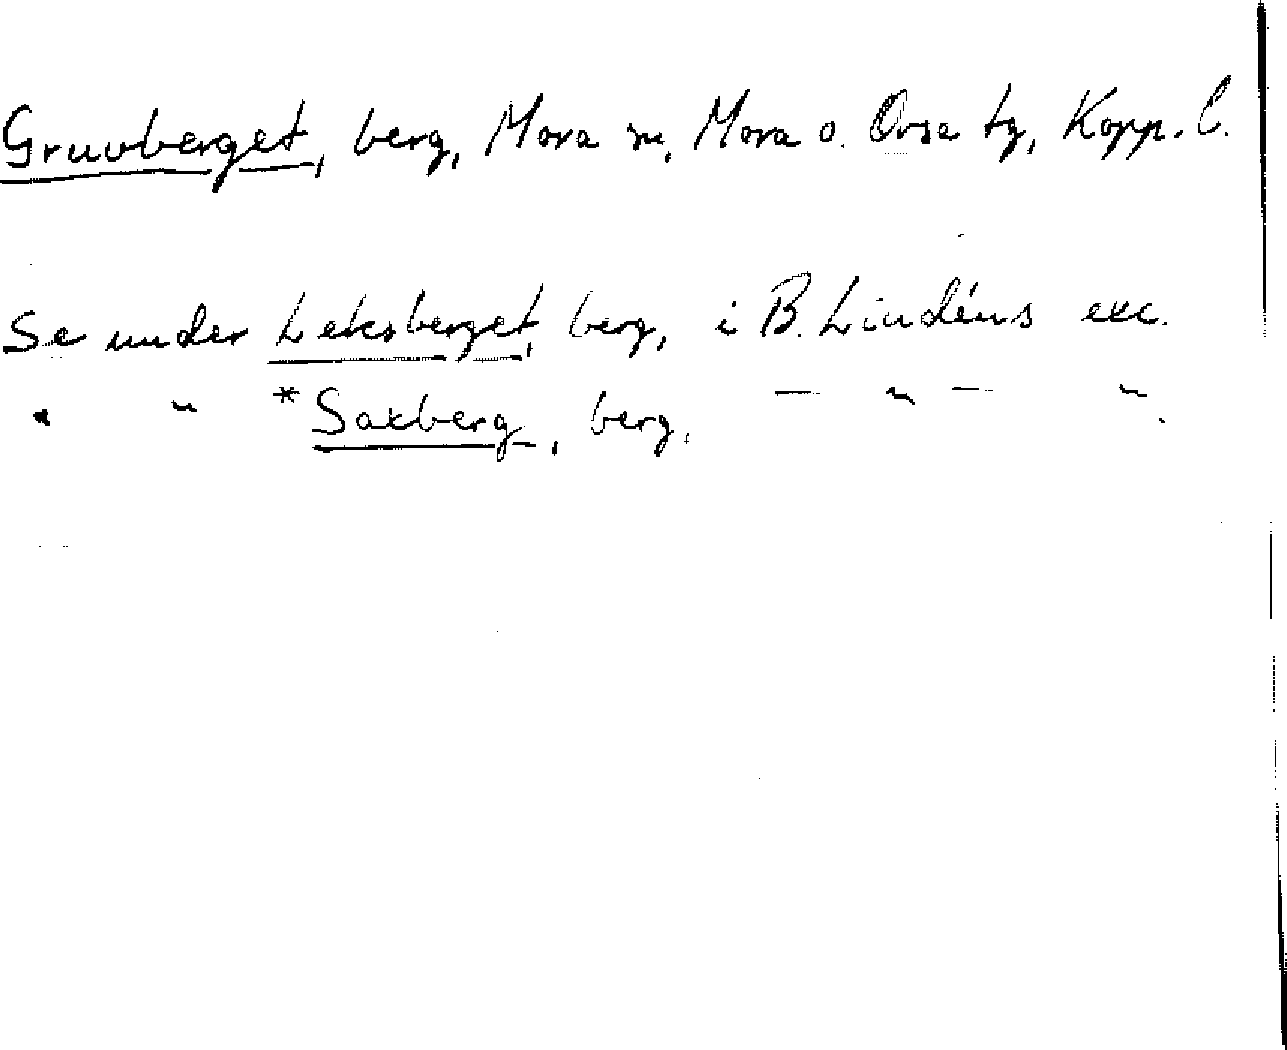 Gruvberget, berg, Mora sn, Mora o. Orsa tg, Kopp. l.
Se under Leksberget, berg, i B. Lindéns exc.
" " *Saxberg, berg, — " — ".